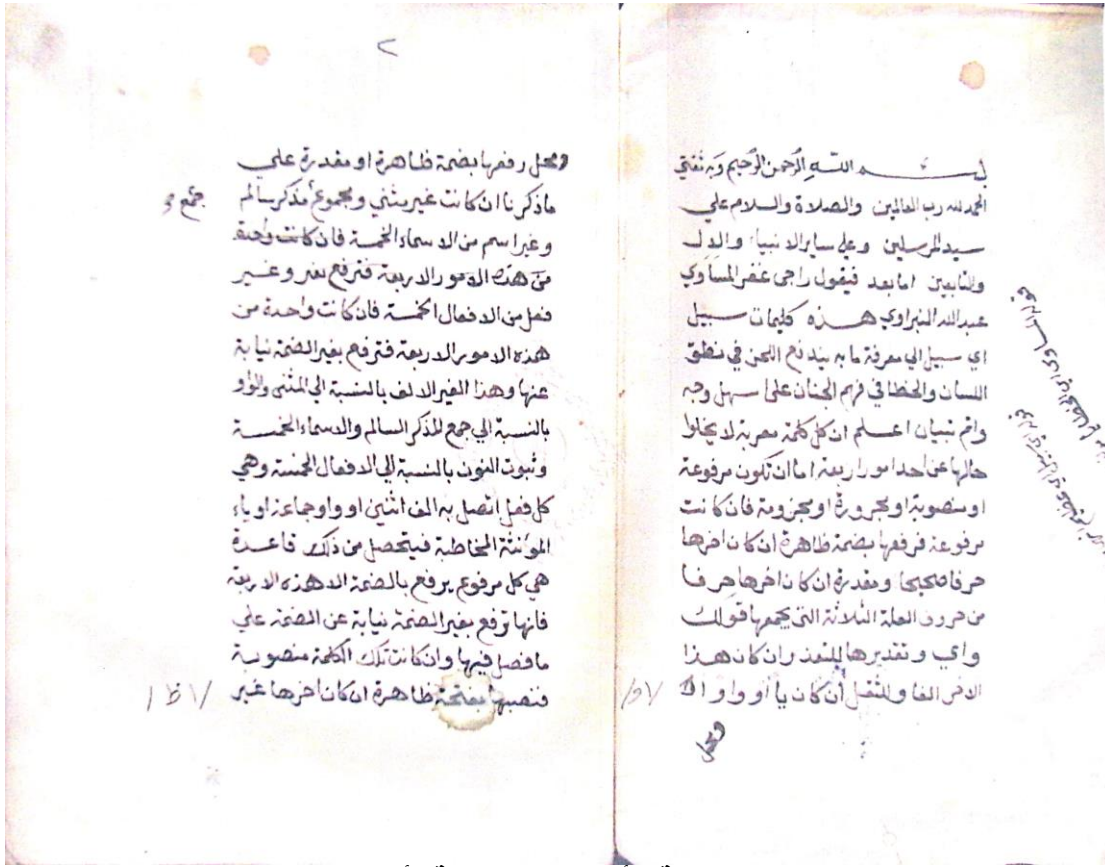 بسم الله الرحمن الرحيم وبه ثقتي
الحمد لله رب العالمين والصلاة والسلام علي
سيد المرسلين وعلي ساير الانبياء والال
والتابعين اما بعد فيقول راجى غفر المساوي
عبدالله النبراوي هذه كليمات سبيل
اي سبيل الي معرفة ما به يندفع اللحن في منطق
اللسان والخطا في فهم الجنان علي اسهل وجه
واتم تبيان اعلم ان كل كلمة معربة لا يخلوا
حالها عن احد امور اربعة اما ان تكون مرفوعة
او منصوبة او مجرورة او مجزومة فان كانت
مرفوعة فرفعها بضمة ظاهرة ان كان اخرها
حرفا صحيحا ومقدرة ان كان اخرها حرفا
من حروف العلة الثلاثة التي يجمعها قولك
واي وتقديرها للتعذر ان كان هذا
الاخر الفا وللثقل ان كان يا او واوا
ومحل
٢
ومحل رفعها بضمة ظاهرة او مقدرة علي
ما ذكرنا ان كانت غير مثني ومجموع مذكر سالم
جمع
وغير اسم من الاسماء الخمسة فان كانت واحدة
من هذه الامور الاربعة فترفع بغير وغير
فعل من الافعال الخمسة فان كانت واحدة من
هذه الامور الاربعة فترفع بغير الضمة نيابة
عنها وهذا الغير الالف بالنسبة الي المثني والواو
بالنسبة الي جمع المذكر السالم والاسماء الخمسة
وثبوت النون بالنسبة الي الافعال الخمسة وهي
كل فعل اتصل به الف اثنين او واو جماعة او ياء
المؤنثة المخاطبة فيتحصل من ذلك قاعدة
هي كل مرفوع يرفع بالضمة الا هذه الاربعة
فانها ترفع بغير الضمة نيابة عن الضمة علي
ما فصل فيها وان كانت تلك الكلمة منصوبة
فنصبها بفتحة ظاهرة ان كان اخرها غير